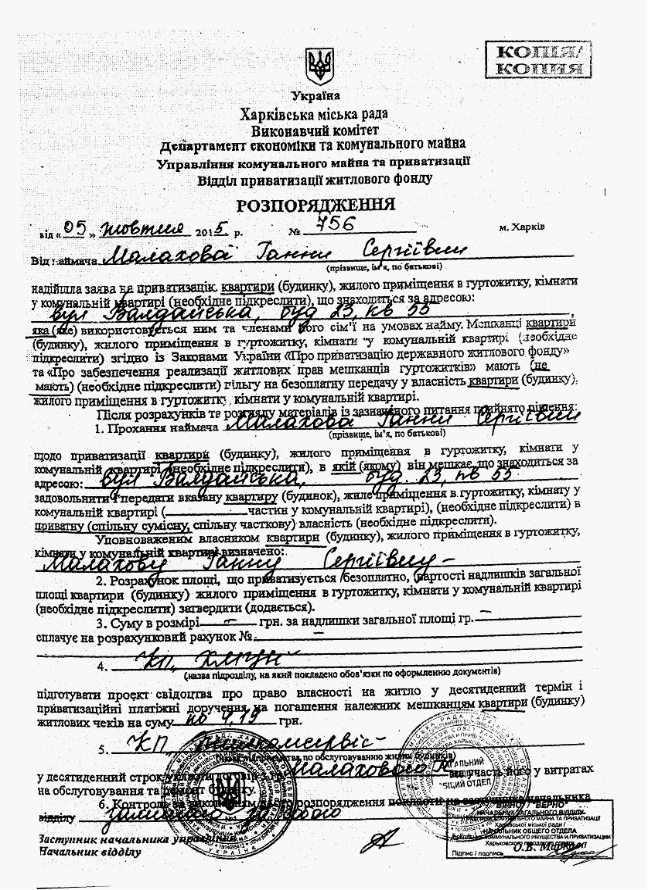 КОПІЯ/
КОПИЯ
Україна
Харківська міська рада
Виконавчий комітет
Департамент економіки та комунального майна
Управління комунального майна та приватизації
Відділ приватизації житлового фонду
РОЗПОРЯДЖЕННЯ
від «05» жовтня 2015 р. № 756 м. Харків
Від наймача Малахової Ганни Сергіївни
(прізвище, ім'я, по батькові)
надійшла заява на приватизацію квартири (будинку), жилого приміщення в гуртожитку, кімнати
у комунальній квартирі (необхідне підкреслити), що знаходиться за адресою:
вул Валдайська, буд 23, кв 55,
яка (не) використовується ним та членами його сім'ї на умовах найму. Мешканці квартири
(будинку), жилого приміщення в гуртожитку, кімнати у комунальній квартирі (необхідне
підкреслити) згідно із Законами України «Про приватизацію державного житлового фонду»
та «Про забезпечення реалізації житлових прав мешканців гуртожитків» мають (не
мають) (необхідне підкреслити) пільгу на безоплатну передачу у власність квартири (будинку),
жилого приміщення в гуртожитку, кімнати у комунальній квартирі.
Після розрахунків та розгляду матеріалів із зазначеного питання прийнято рішення:
1. Прохання наймача Малахова Ганни Сергіївни
(прізвище, ім'я, по батькові)
щодо приватизації квартири (будинку), жилого приміщення в гуртожитку, кімнати у
комунальній квартирі (необхідне підкреслити), в якій (якому) він мешкає, що знаходиться за
адресою: вул Валдайська, буд. 23, кв 55
задовольнити і передати вказану квартиру (будинок), жиле приміщення в гуртожитку, кімнату у
комунальній квартирі (частин у комунальній квартирі), (необхідне підкреслити) в
приватну (спільну сумісну, спільну часткову) власність (необхідне підкреслити).
Уповноваженим власником квартири (будинку), жилого приміщення в гуртожитку,
кімнати у комунальній квартирі визначено:
Малахову Ганну Сергіївну –
2. Розрахунок площі, що приватизується безоплатно, (вартості надлишків загальної
площі квартири (будинку) жилого приміщення в гуртожитку, кімнати у комунальній квартирі
(необхідне підкреслити) затвердити (додається).
3. Суму в розмірі – грн. за надлишки загальної площі гр. –
сплачує на розрахунковий рахунок № –
4. КП
(назва підрозділу, на який покладено обов'язки по оформленню документів)
підготувати проект свідоцтва про право власності на житло у десятиденний термін і
приватизаційні платіжні доручення на погашення належних мешканцям квартири (будинку)
житлових чеків на суму по 4,19 грн.
5. КП Жилкомсервіс
підприємства по обслуговуванню жилих будинків)
у десятиденний строк Малаховою участь його у витратах
на обслуговування та ремонт будинку.
6. Контроль за виконанням цього розпорядження покласти на начальника
відділу
Заступник начальника управління
Начальник відділу
ЗАГАЛЬНИЙ
ОБЩИЙ ОТДЕЛ
"ВІРНО" / "ВЕРНО"
НАЧАЛЬНИК ЗАГАЛЬНОГО ВІДДІЛУ
Харківської міської ради /
НАЧАЛЬНИК ОБЩЕГО ОТДЕЛА
Харьковского городского совета
Підпис / подпись О.В.